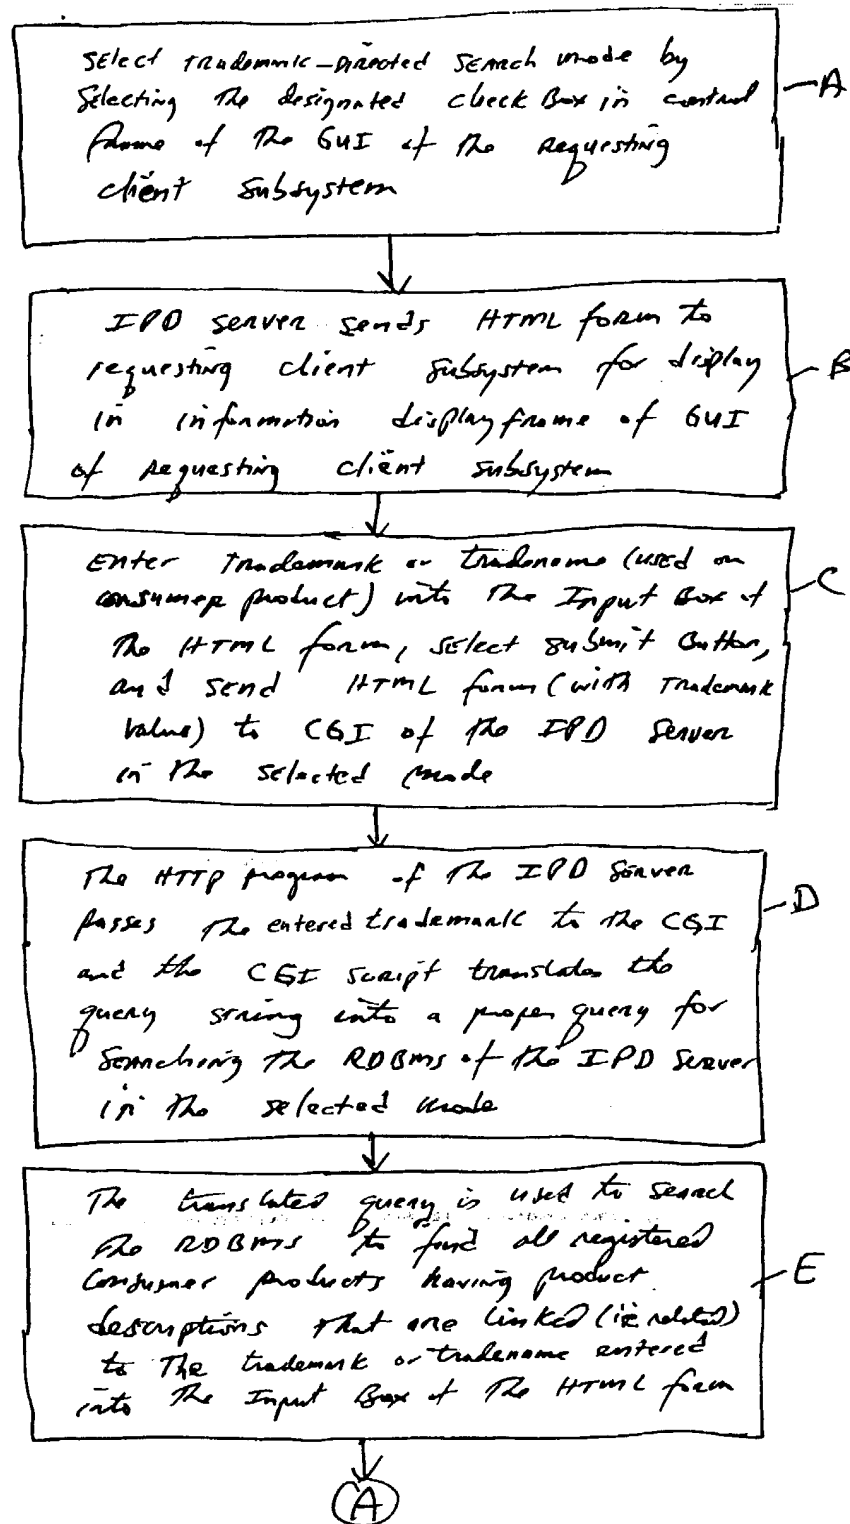 Select Trademark-Directed Search mode by
Selecting The designated check Box in control
frame of the GUI of the Requesting
client Subsystem
A
IPD Server sends HTML form to
requesting client Subsystem for display
in information display frame of GUI
of Requesting client Subsystem
B
Enter Trademark or tradename (used on
consumer product) into The Input Box of
The HTML form, Select Submit Button,
and send HTML form (with Trademark
Value) to CGI of The IPD Server
in The Selected mode
C
The HTTP program of The IPD Server
passes The entered trademark to the CGI
and the CGI script translates the
query string into a proper query for
Searching the RDBMS of the IPD Server
in The selected mode
D
The translated query is used to Search
The RDBMS to find all registered
Consumer products having product
descriptions That are linked (ie related)
to The trademark or tradename entered
into The Input Box of The HTML form
E
A